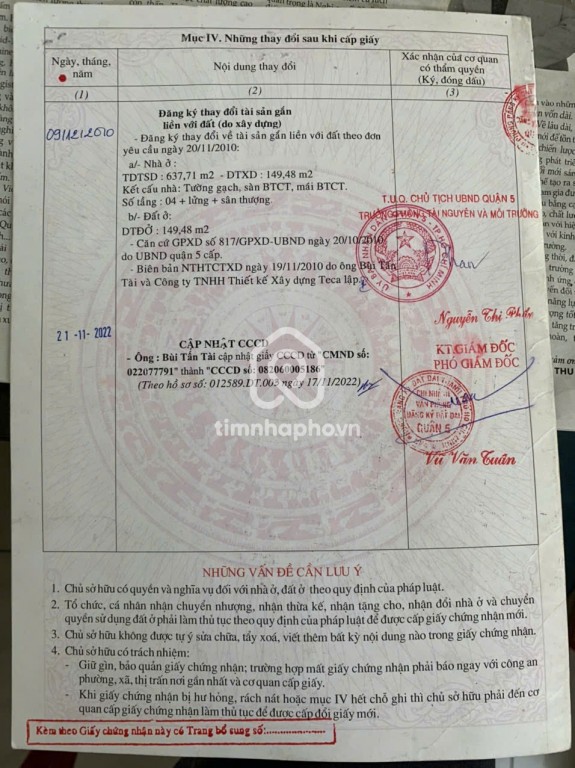 Mục IV. Những thay đổi sau khi cấp giấy
Ngày, tháng, năm
Nội dung thay đổi
Xác nhận của cơ quan có thẩm quyền (Ký, đóng dấu)
(1)
(2)
(3)
09/12/2010
Đăng ký thay đổi tài sản gắn
liền với đất (do xây dựng)
- Đăng ký thay đổi về tài sản gắn liền với đất theo đơn
yêu cầu ngày 20/11/2010:
a/- Nhà ở :
TDTSD : 637,71 m2 - DTXD : 149,48 m2
Kết cấu nhà: Tường gạch, sàn BTCT, mái BTCT.
Số tầng : 04 + lửng + sân thượng.
b/- Đất ở :
DTĐỞ : 149,48 m2
- Căn cứ GPXD số 817/GPXD-UBND ngày 20/10/2010
do UBND quận 5 cấp.
- Biên bản NTHTCTXD ngày 19/11/2010 do ông Bùi Tấn
Tài và Công ty TNHH Thiết kế Xây dựng Teca lập.
T.U.Q. CHỦ TỊCH UBND QUẬN 5
TRƯỞNG PHÒNG TÀI NGUYÊN VÀ MÔI TRƯỜNG
Nguyễn Thị
21-11-2022
CẬP NHẬT CCCD
- Ông : Bùi Tấn Tài cập nhật giấy CCCD từ "CMND số:
022077791" thành "CCCD số: 082060005186"
(Theo hồ sơ số: 012589.DT.005 ngày 17/11/2022)
KT.GIÁM ĐỐC
PHÓ GIÁM ĐỐC
CHI NHÁNH
VĂN PHÒNG
ĐĂNG KÝ ĐẤT ĐAI
QUẬN 5
Vũ Văn Tuân
timnhapho.vn
NHỮNG VẤN ĐỀ CẦN LƯU Ý
1. Chủ sở hữu có quyền và nghĩa vụ đối với nhà ở, đất ở theo quy định của pháp luật.
2. Tổ chức, cá nhân nhận chuyển nhượng, nhận thừa kế, nhận tặng cho, nhận đổi nhà ở và chuyển
quyền sử dụng đất ở phải làm thủ tục theo quy định của pháp luật để được cấp giấy chứng nhận mới.
3. Chủ sở hữu không được tự ý sửa chữa, tẩy xoá, viết thêm bất kỳ nội dung nào trong giấy chứng nhận.
4. Chủ sở hữu có trách nhiệm:
- Giữ gìn, bảo quản giấy chứng nhận; trường hợp mất giấy chứng nhận phải báo ngay với công an
phường, xã, thị trấn nơi gần nhất và cơ quan cấp giấy.
- Khi giấy chứng nhận bị hư hỏng, rách nát hoặc mục IV hết chỗ ghi thì chủ sở hữu phải đến cơ
quan cấp giấy chứng nhận làm thủ tục để được cấp đổi giấy mới.
Kèm theo Giấy chứng nhận này có Trang bổ sung số:................